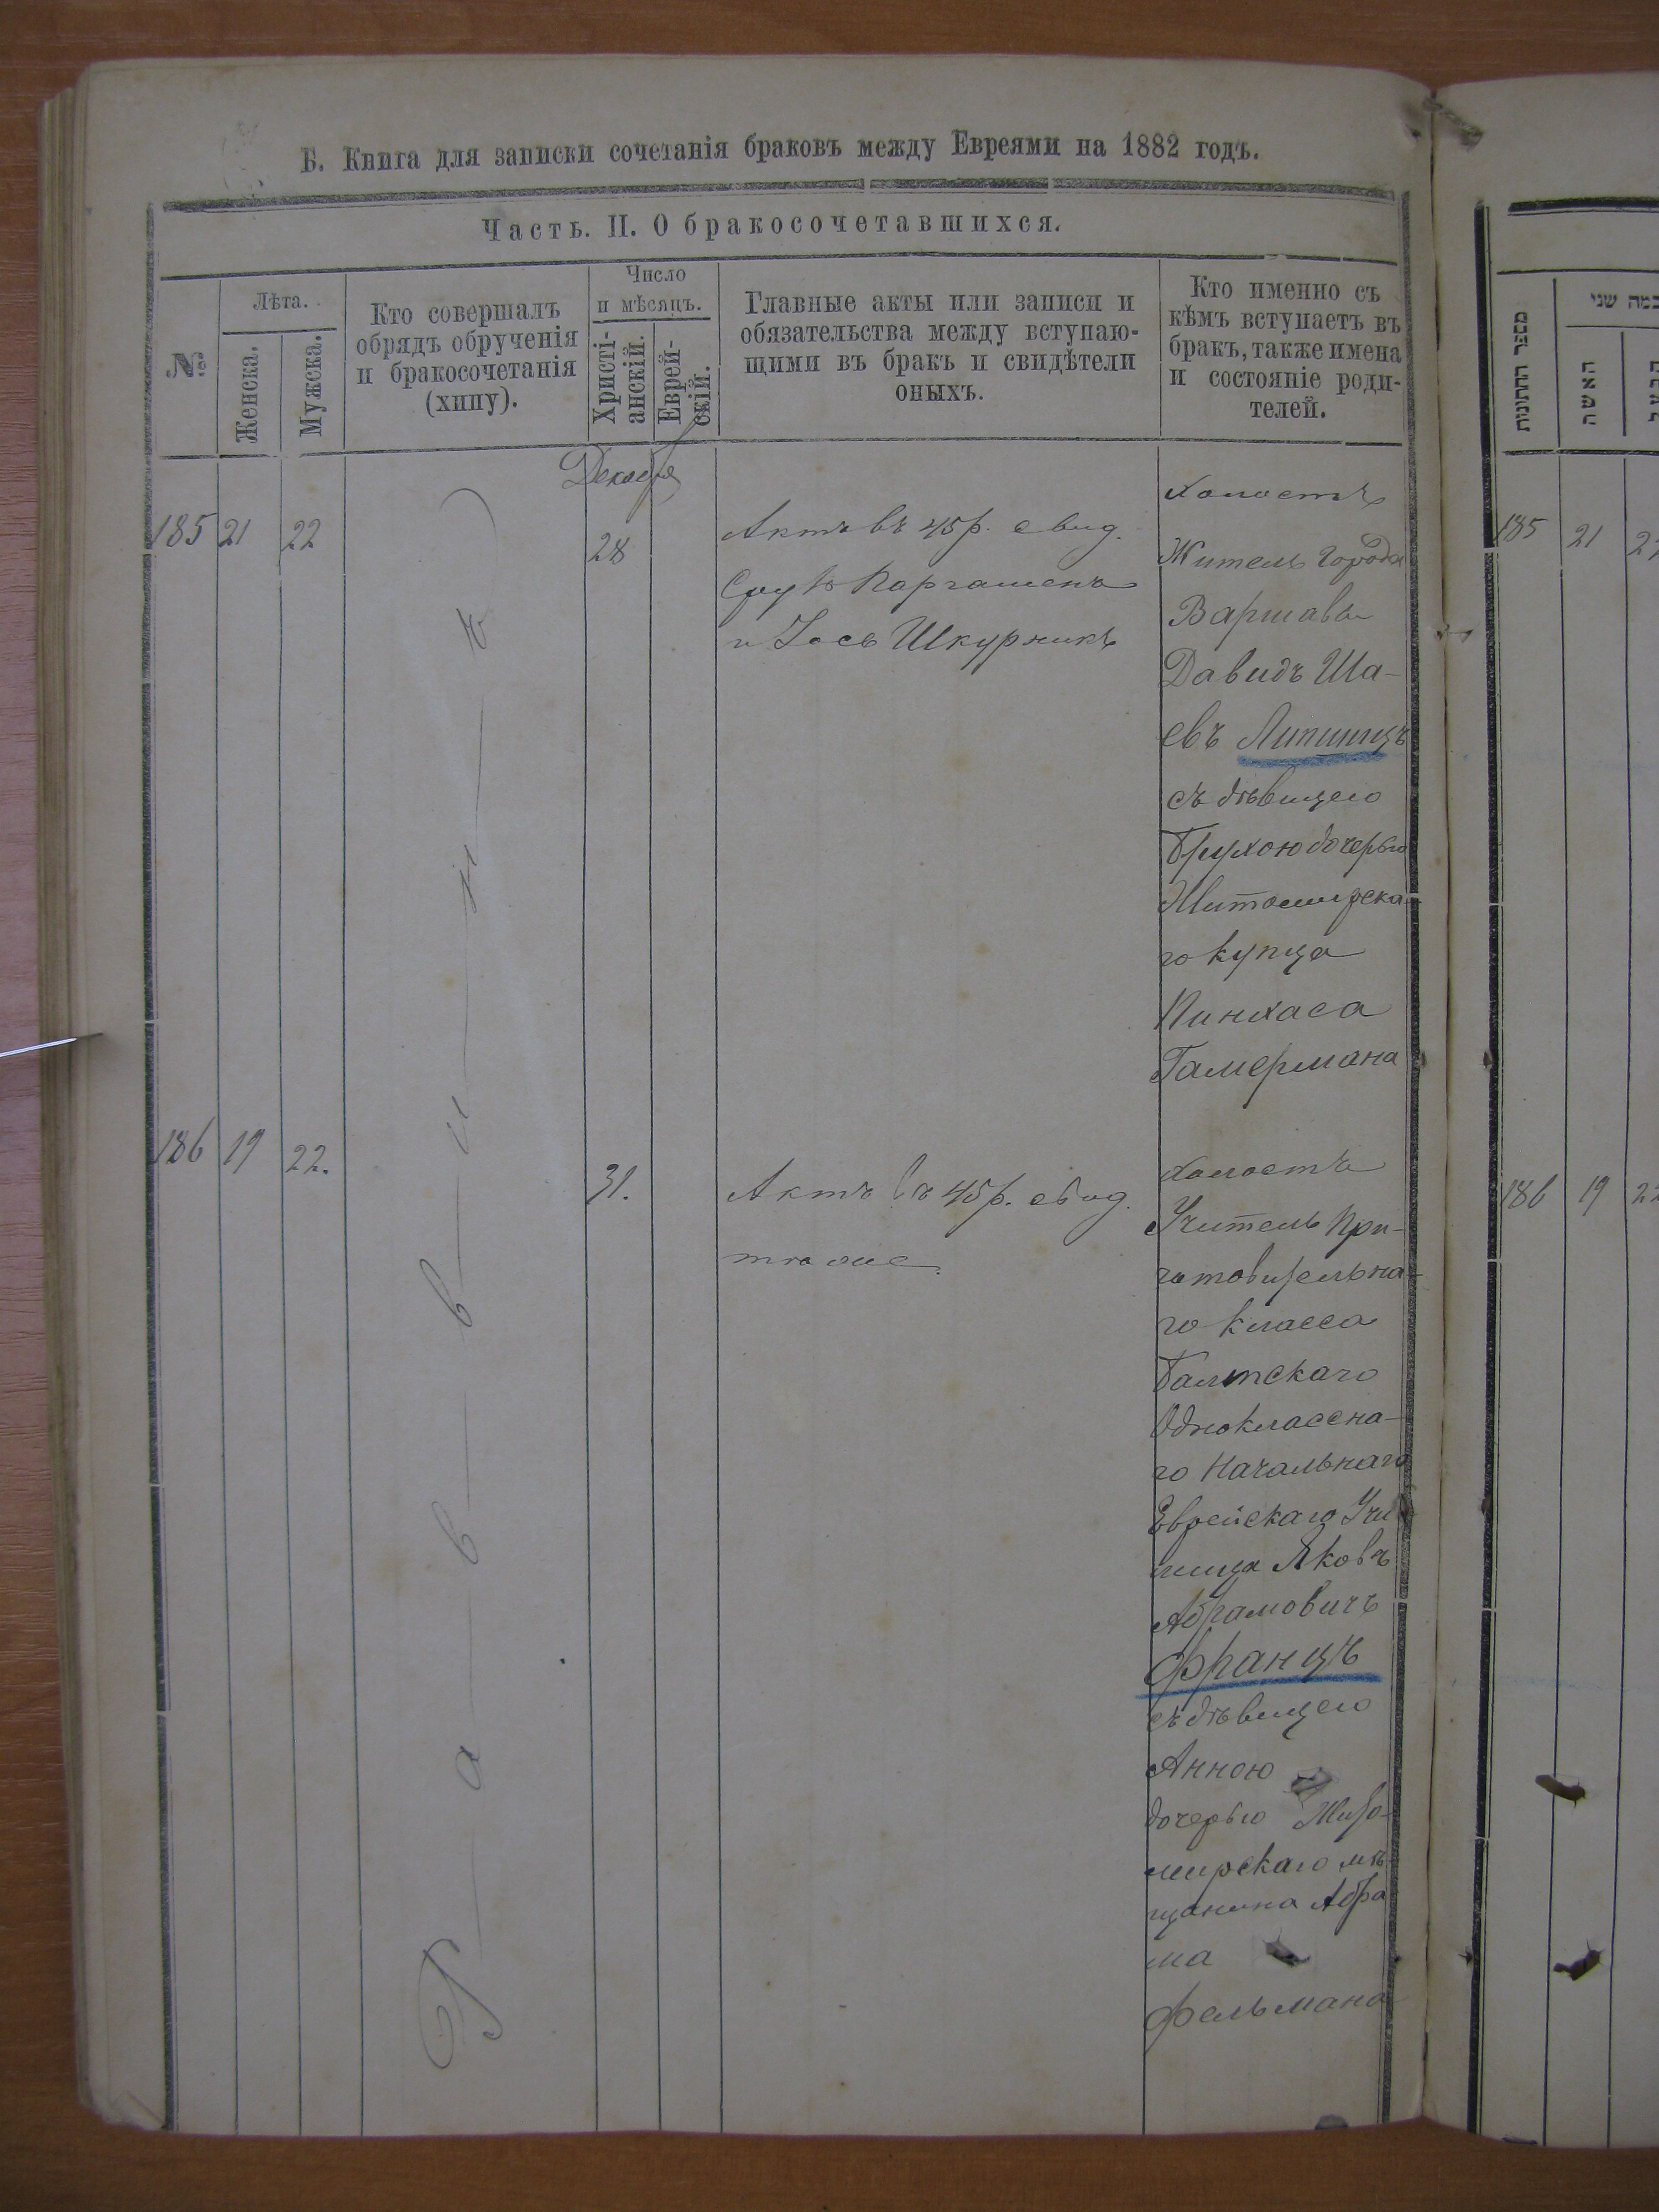 Б. Книга для записки сочетанія браковъ между Евреями на 1882 годъ.
Часть. II. О бракосочетавшихся.
№
Лѣта.
Женска.
Мужска.
Кто совершалъ
обрядъ обрученія
и бракосочетанія
(хипу).
Число
и мѣсяцъ.
Христі-
анскій.
Еврей-
скій.
Главные акты или записи и
обязательства между вступаю-
щими въ бракъ и свидѣтели
оныхъ.
Кто именно съ
кѣмъ вступаетъ въ
бракъ, также имена
и состояніе роди-
телей.
Декабря
185 21 22
Раввинъ
28
Актъ въ 45 р. свид.
и Іось Шкурникъ
Холостъ
Житель Города
Варшавы
Давидъ Ша-
евъ Липшицъ
съ дѣвицею
Брухою дочерью
Житомирска-
го купца
Пинхаса
Гамермана
186 19 22.
31.
Актъ въ 45 р. свид.
тѣ же.
Холостъ
Учитель При-
готовительна-
го класса
Балтскаго
Одноклассна-
го Начальнаго
Еврейскаго Учи
лища Яковъ
Абрамовичъ
Францъ
съ дѣвицею
Анною
дочерью Жито-
мирскаго мѣ-
щанина Абра
ма
Фельмана
מספר החתונות
כמה שני
האשה
185 21
186 19 22